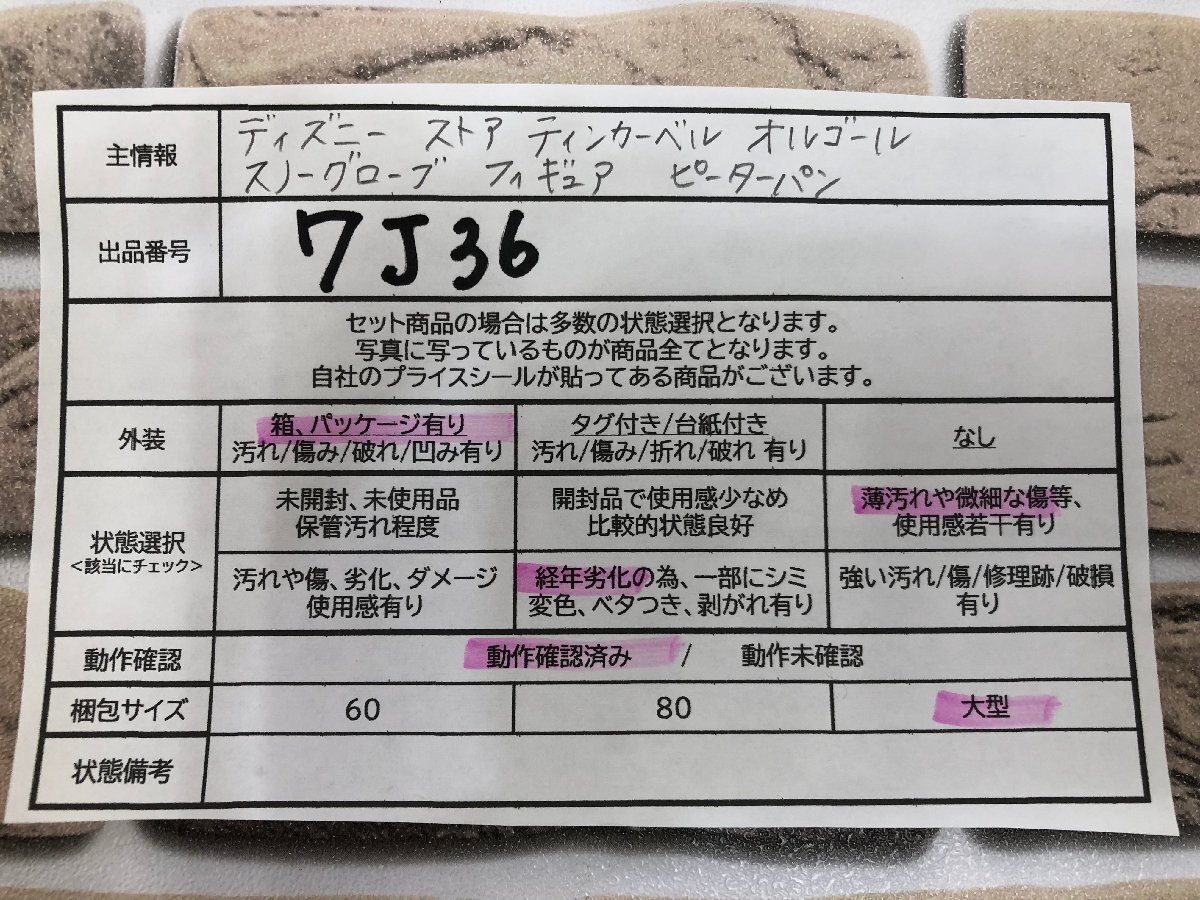 主情報
ディズニー ストア ティンカーベル オルゴール
スノーグローブ フィギュア ピーターパン
出品番号
7J36
セット商品の場合は多数の状態選択となります。
写真に写っているものが商品全てとなります。
自社のプライスシールが貼ってある商品がございます。
外装
箱、パッケージ有り
汚れ/傷み/破れ/凹み有り
タグ付き/台紙付き
汚れ/傷み/折れ/破れ 有り
なし
状態選択
<該当にチェック>
未開封、未使用品
保管汚れ程度
開封品で使用感少なめ
比較的状態良好
薄汚れや微細な傷等、
使用感若干有り
汚れや傷、劣化、ダメージ
使用感有り
経年劣化の為、一部にシミ
変色、ベタつき、剥がれ有り
強い汚れ/傷/修理跡/破損
有り
動作確認
動作確認済み / 動作未確認
梱包サイズ
60
80
大型
状態備考